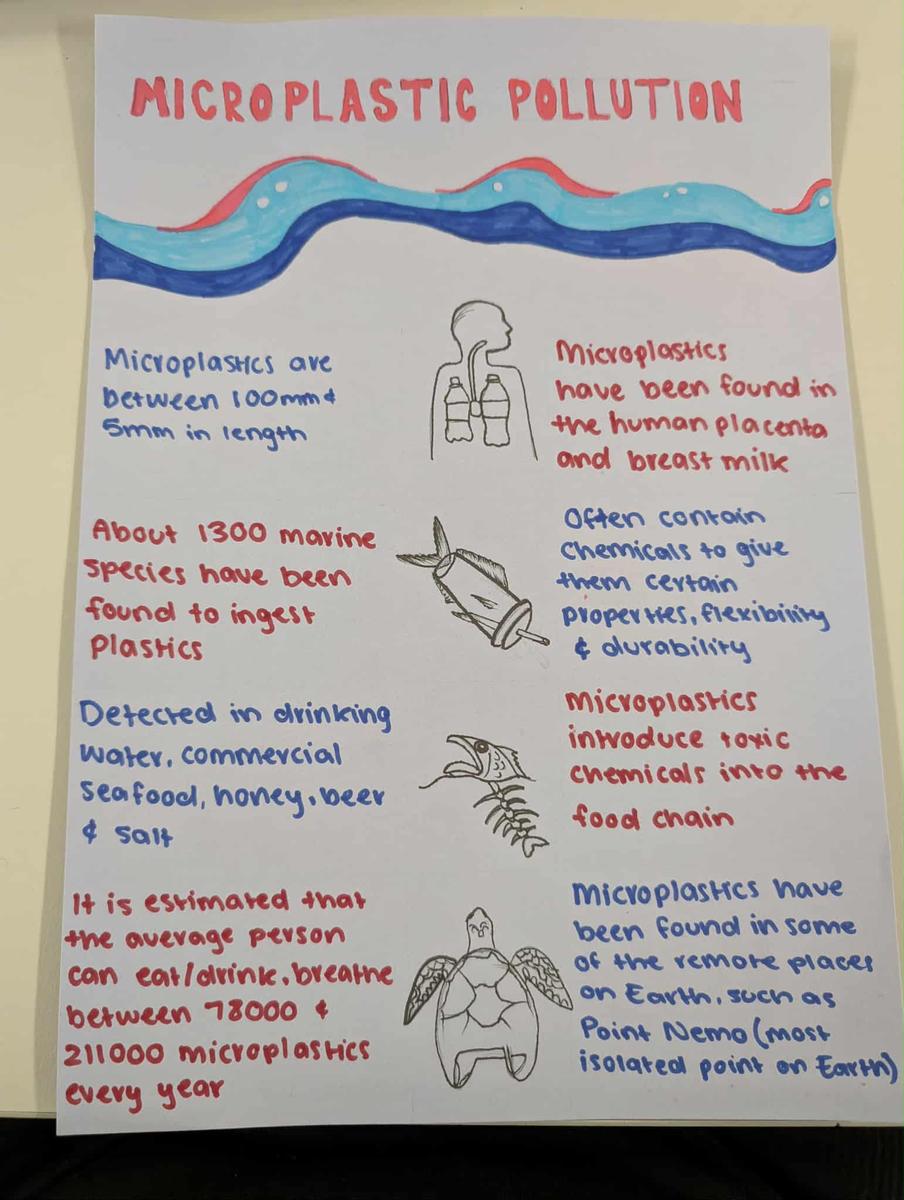 MICROPLASTIC POLLUTION
Microplastics are
between 100mm &
5mm in length
Microplastics
have been found in
the human placenta
and breast milk
About 1300 marine
species have been
found to ingest
Plastics
Often contain
chemicals to give
them certain
properties, flexibility
& durability
Detected in drinking
water, commercial
seafood, honey, beer
& salt
Microplastics
introduce toxic
chemicals into the
food chain
It is estimated that
the average person
can eat/drink, breathe
between 78000 &
211000 microplastics
every year
Microplastics have
been found in some
of the remote places
on Earth, such as
Point Nemo (most
isolated point on Earth)